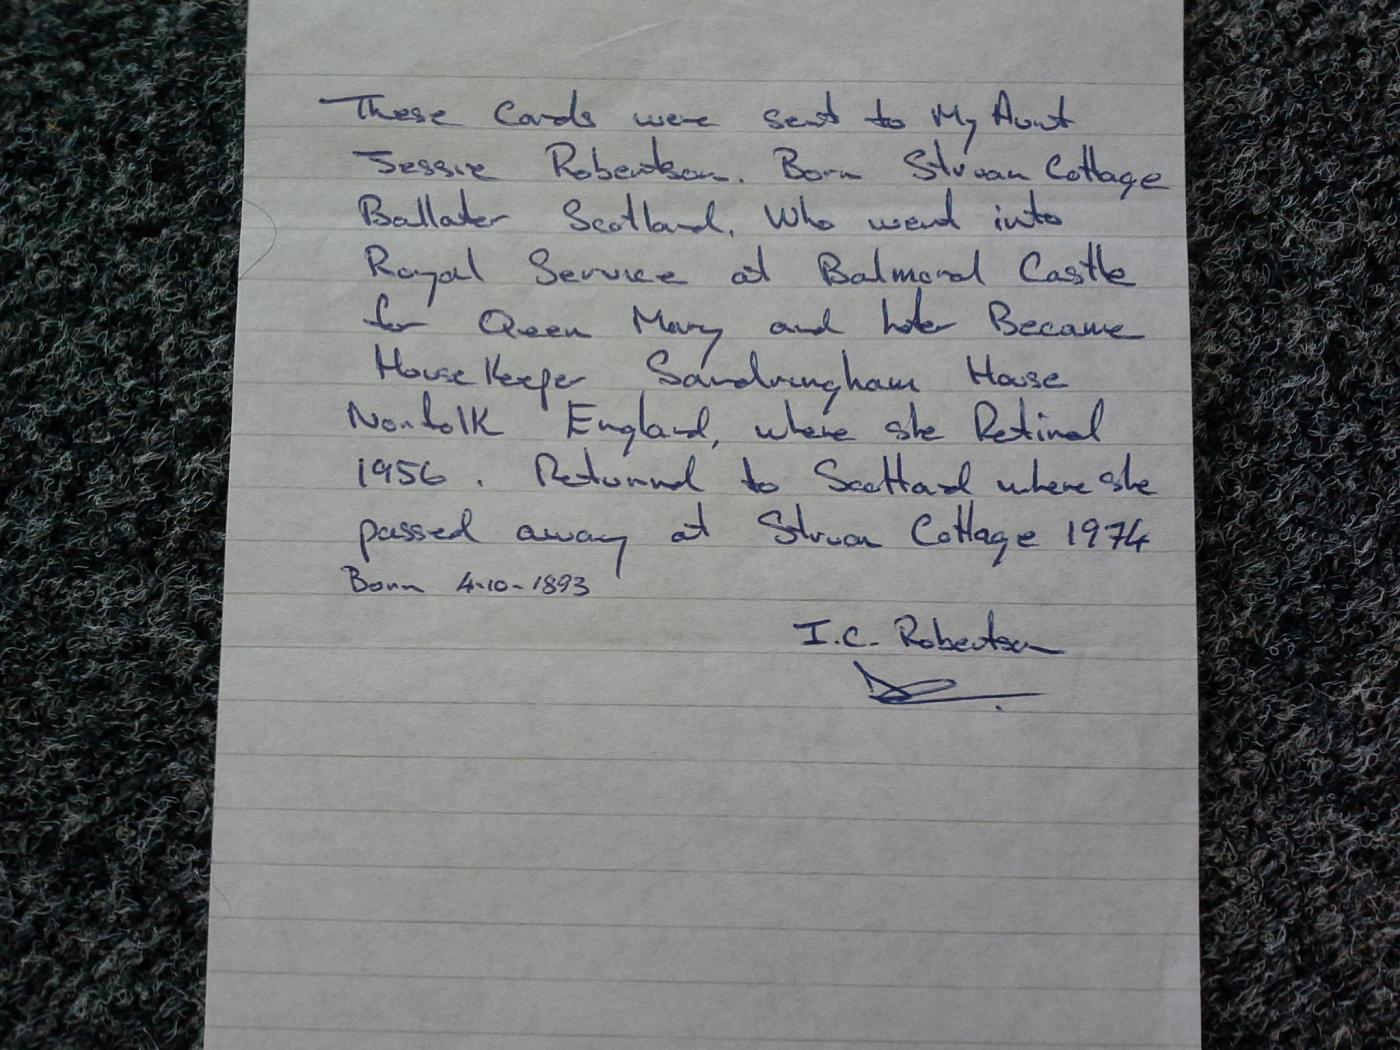 These Cards were sent to My Aunt
Jessie Robertson. Born Struan Cottage
Ballater Scotland, Who went into
Royal Service at Balmoral Castle
for Queen Mary and later Became
House Keeper Sandringham House
Norfolk England, where she Retired
1956. Returned to Scotland where she
passed away at Struan Cottage 1974
Born 4-10-1893
I.C. Robertson